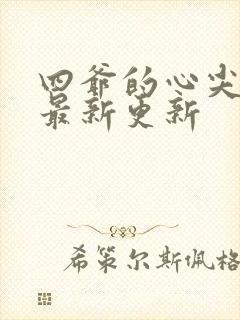 四爷的心尖
最新更新
希策尔斯佩格